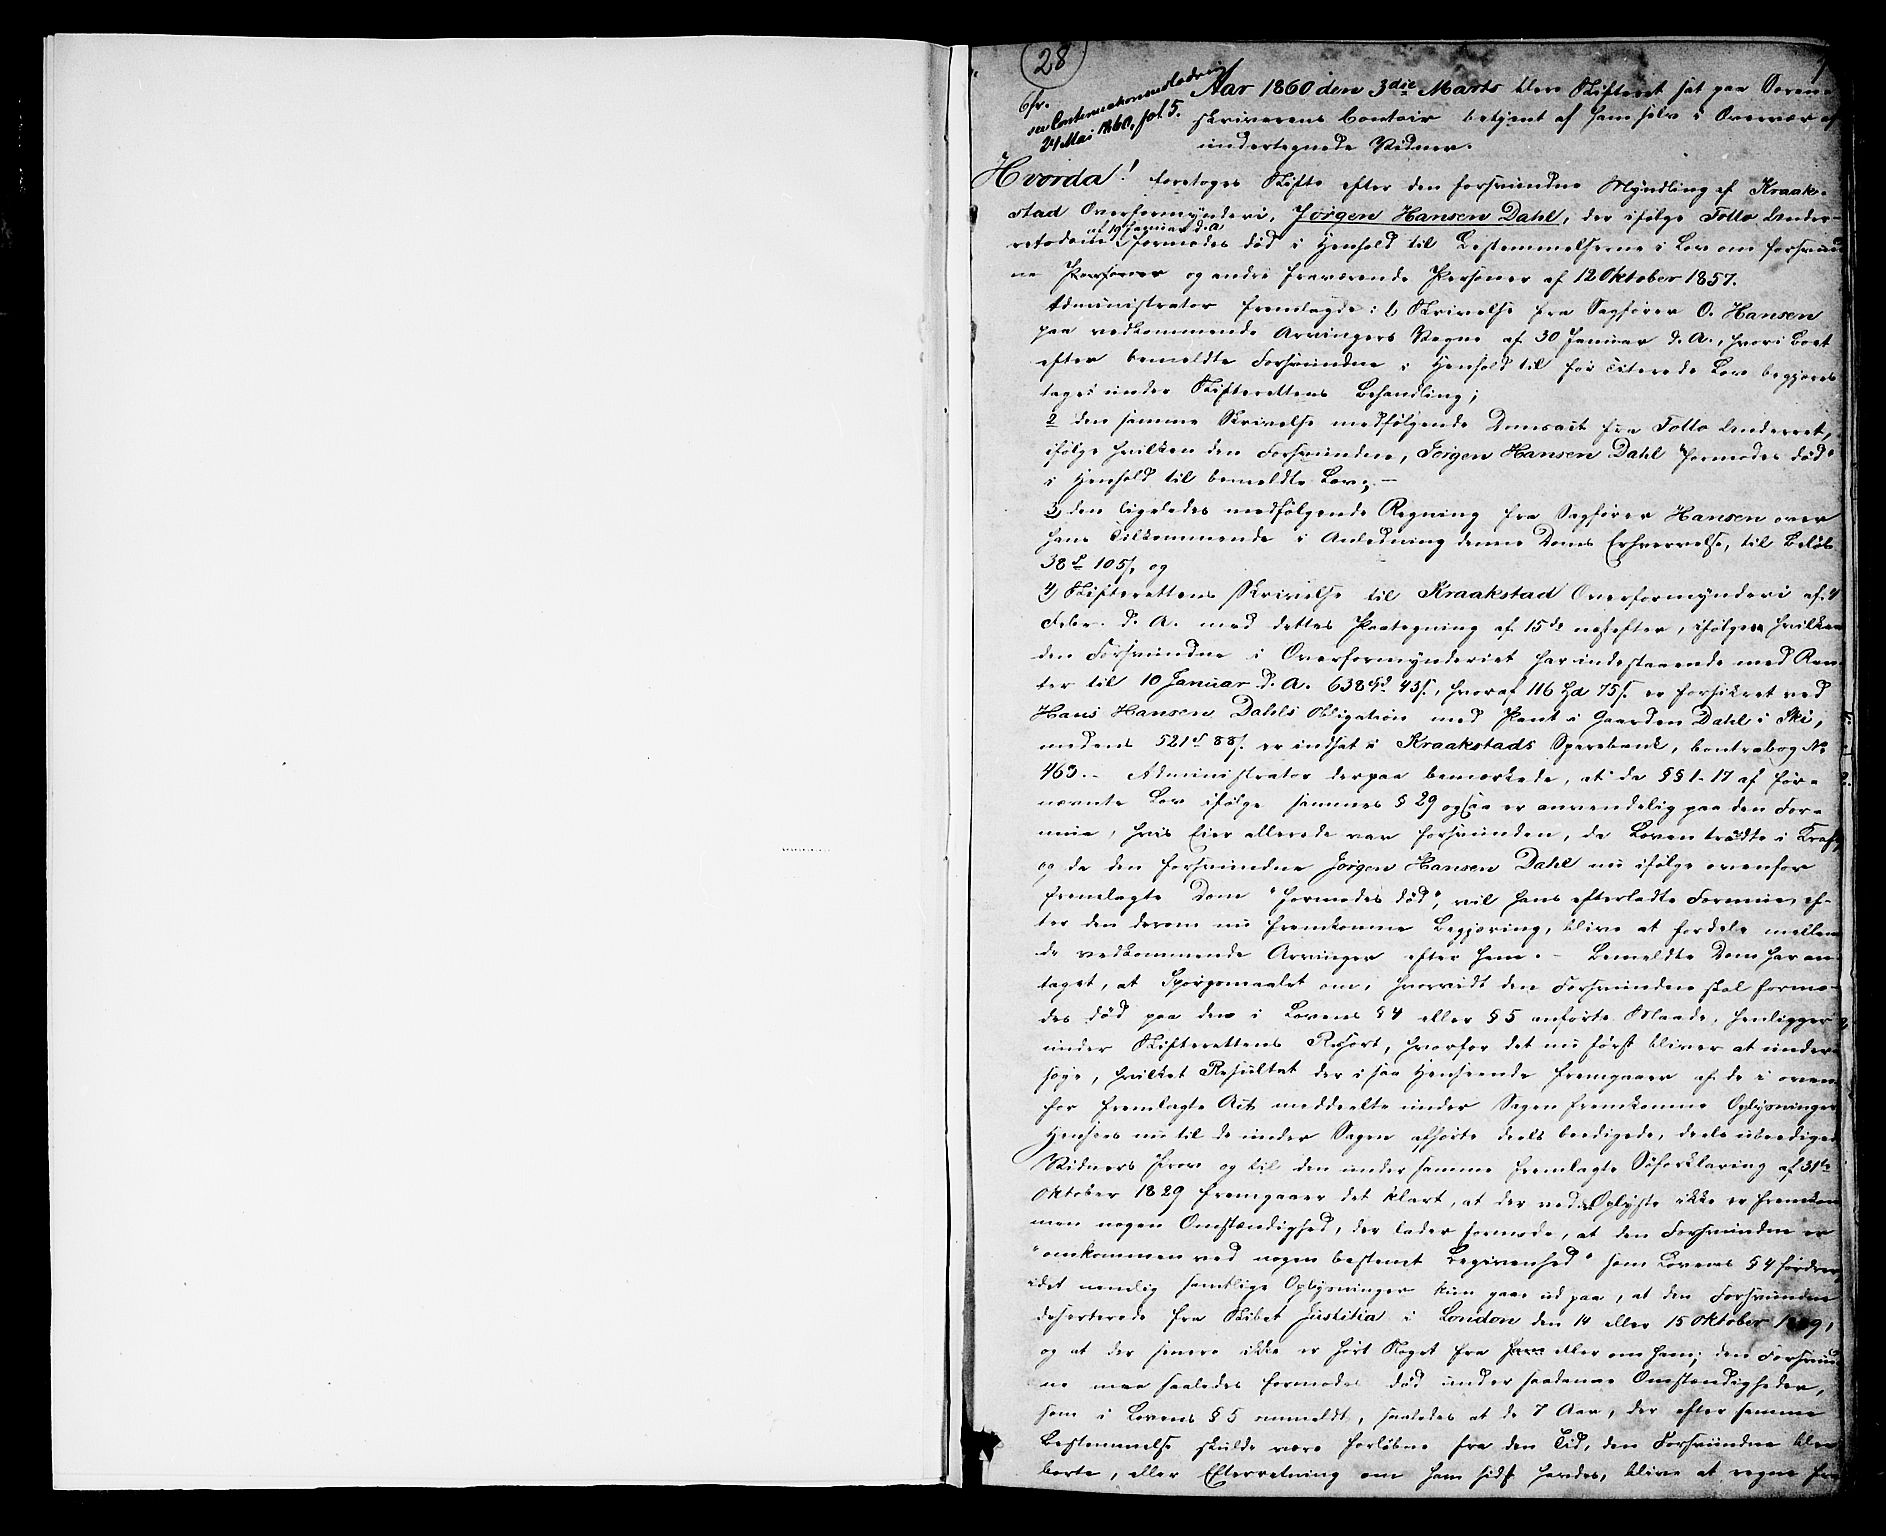 28
1
Cfr.
se Continuationsudlodning
24 Mai 1860, fol. 5.
Aar 1860 den 3die Marts blev Skifteret sat paa Soren-
skriverens Contoir betjent af ham selv i Overvær af
undertegnede Vidner.
Hvorda! foretoges Skifte efter den forsvundne Myndling af Kraak-
stad Overformynderi, Jørgen Hansen Dahl, der ifølge Follo Under-
retsdom af 19 Januar d. A. formodes død i Henhold til Bestemmelserne i Lov om forsvund-
ne Personer og andre fraværende Personer af 12 Oktober 1857.
Administrator fremlagde: 1, Skrivelse fra Sagfører O. Hansen
paa vedkommende Arvingers Vegne af 30 Januar d. A., hvori Boet
efter bemeldte Forsvundne i Henhold til før citerede Lov begjæres
taget under Skifterettens Behandling;
2 den samme Skrivelse medfølgende Domsact fra Follo Underret,
ifølge hvilken den Forsvundne, Jørgen Hansen Dahl formodes død
i Henhold til bemeldte Lov; —
3, den ligeledes medfølgende Regning fra Sagfører Hansen over
hans Tilkommende i Anledning denne Doms Erhvervelse, til Beløb
38 d 105 s, og
4, Skifterettens Skrivelse til Kraakstad Overformynderi af 4
Febr. d. A. med dettes Paategning af 15de næstefter, ifølge hvilken
den Forsvundne i Overformynderiet har indestaaende med Ren-
ter til 10 Januar d. A. 638 Spd 43 s., hvoraf 116 Spd 75 s. er forsikret ved
Hans Hansen Dahls Obligation med Pant i Gaarden Dahl i Ski,
medens 521 d 88 s. er indsat i Kraakstads Sparebank, Contrabog No
463. — Administrator derpaa bemærkede, at da §§ 1-17 af før-
nævnte Lov ifølge sammes § 29 ogsaa er anvendelig paa den For-
mue, hvis Eier allerede var forsvunden, da Loven traadte i Kraft,
og da den forsvundne Jørgen Hansen Dahl nu ifølge ovenfor
fremlagte Dom "formodes død", vil hans efterladte Formue, ef-
ter den derom nu fremkomne Begjæring, blive at fordele mellem
de vedkommende Arvinger efter ham. — Bemeldte Dom har an-
taget, at Spørgsmaalet om, hvorvidt den Forsvundne skal formo-
des død paa den i Lovens § 4 eller § 5 anførte Maade, henligger
under Skifterettens Resort, hvorfor det nu først bliver at under-
søge, hvilket Resultat der i saa Henseende fremgaaer af de i oven-
for fremlagte Act meddeelte under Sagen fremkomne Oplysninger.
Henseees nu til de under Sagen afhørte deels beedigede, deels ubeedigede
Vidners Prov og til den under samme fremlagte Søforklaring af 31te
Oktober 1829 fremgaaer det klart, at der ved det Oplyste ikke er fremkom-
men nogen Omstændighed, der lader formode, at den Forsvundne er
"omkommen ved nogen bestemt Begivenhed" som Lovens § 4 fordrer,
idet nemlig samtlige Oplysninger kun gaae ud paa, at den Forsvundne
deserterede fra Skibet Justitia i London den 14 eller 15 Oktober 1829,
og at der senere ikke er hørt Noget fra ham eller om ham; den Forsvund-
ne maa saaledes formodes død under saadanne Omstændigheder,
som i Lovens § 5 ommeldt, saaledes at de 7 Aar, der efter samme
Bestemmelse skulde være forløbne fra den Tid, den Forsvundne blev
borte, eller Efterretning om ham sidst havdes, blive at regne fra